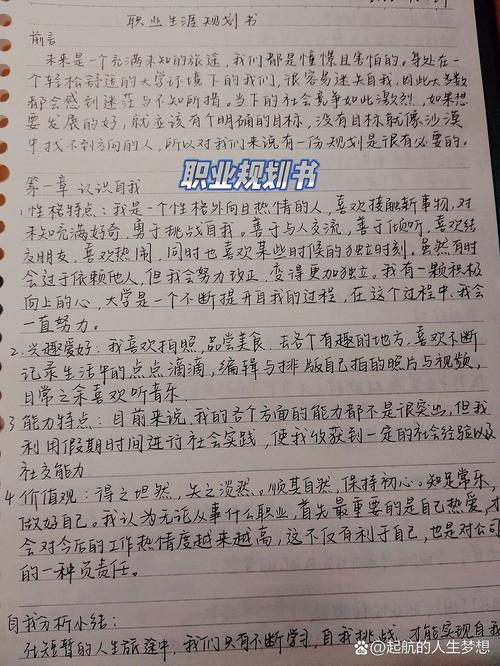 职业生涯规划书
前言
未来是一个充满未知的旅途，我们都是憧憬且害怕的。身处在一
个轻松舒适的大学环境下的我们，很容易迷失自我，因此大多数
都会感到迷茫与不知所措。当下的社会竞争如此激烈，如果想
要发展的好，就应该有个明确的目标，没有目标就像沙漠
中找不到方向的人，所以对我们来说有一份规划是很有必要的。
职业规划书
第一章 认识自我
1.性格特点：我是一个性格外向且热情的人，喜欢接触新事物，对
未知充满好奇，勇于挑战自我。善于与人交流，善于倾听，喜欢结
交朋友，喜欢热闹，同时也喜欢某些时候的独立时刻。虽然有时
会过于依赖他人，但我会努力改正，变得更加独立。我有一颗积极
向上的心，大学是一个不断提升自我的过程，在这个过程中，我会
一直努力。
2.兴趣爱好：我喜欢拍照，品尝美食，去各个有趣的地方，喜欢不断
记录生活中的点点滴滴，编辑与排版自己拍的照片与视频，
日常之余喜欢听音乐。
3.能力特点：目前来说，我的各个方面的能力都不是很突出，但我
利用假期时间进行社会实践，使我收获到一定的社会经验以及
社交能力
4.价值观：得之坦然，失之淡然。顺其自然，保持初心。知足常乐，
做好自己。我认为无论从事什么职业，首先最重要的是自己热爱，才
会对今后的工作热情度越来越高，这不仅有利于自己，也是对公司
的一种负责任。
自我分析小结：
在短暂的人生旅途中，我们只有不断学习，自我挑战，才能实现自我
@起航的人生梦想